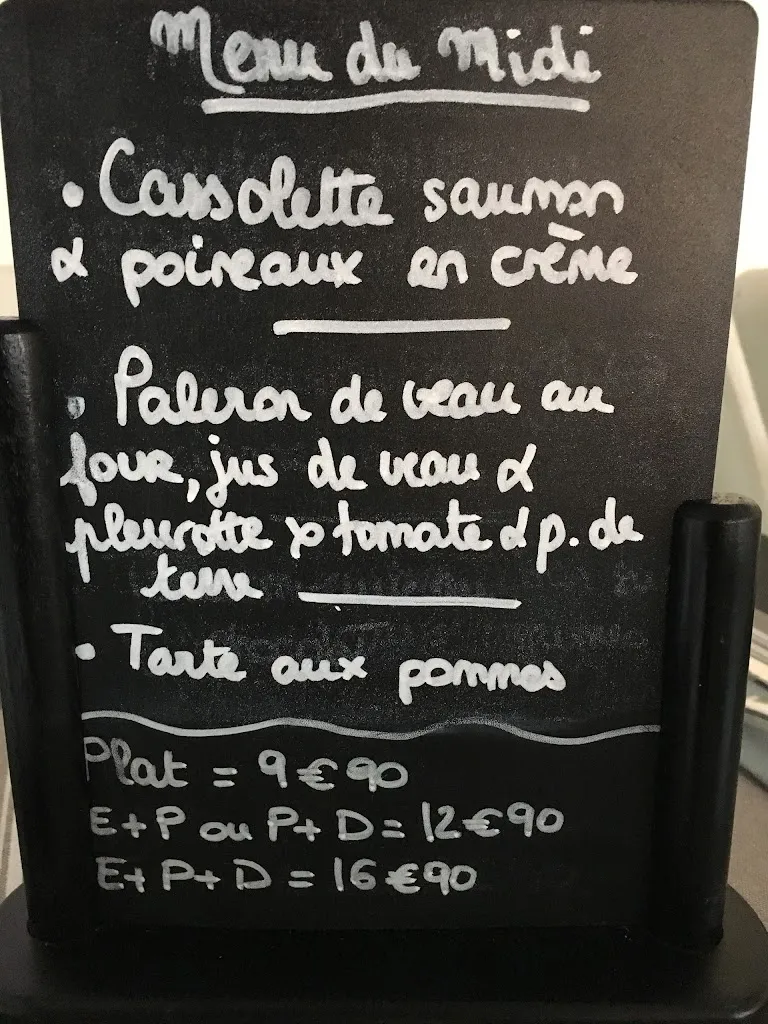 Menu du Midi
• Cassolette saumon
& poireaux en crème
• Paleron de veau au
four, jus de veau &
pleurotte tomate & p. de
terre
• Tarte aux pommes
Plat = 9€90
E+P ou P+D = 12€90
E+P+D = 16€90